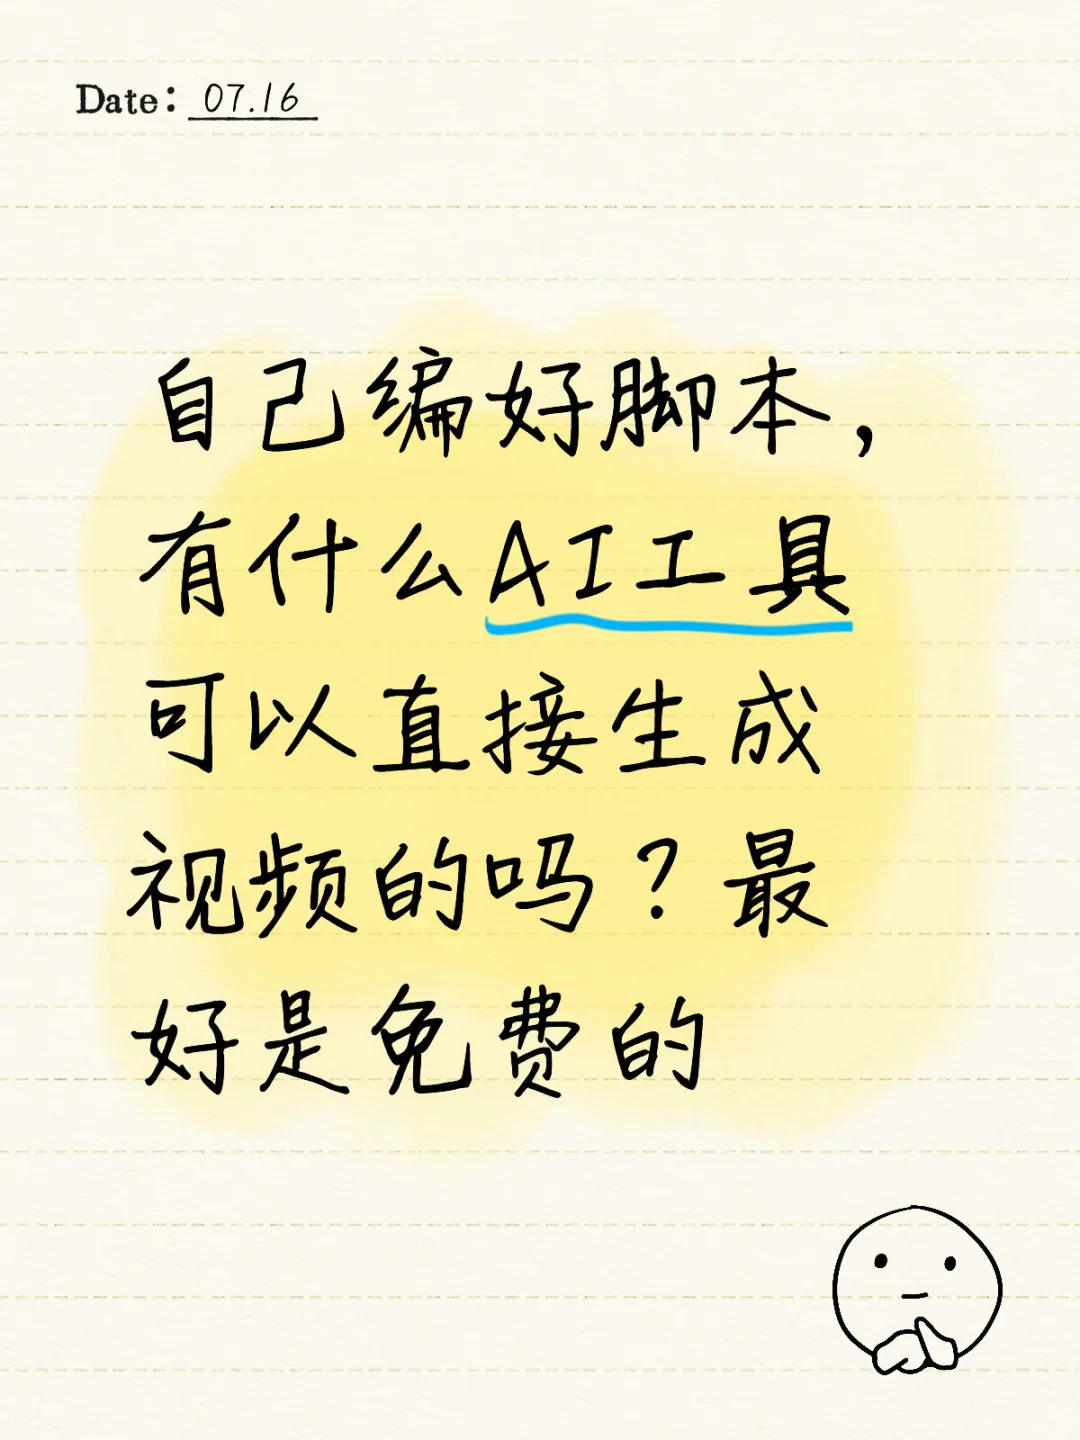 Date: 07.16
自己编好脚本，
有什么AI工具
可以直接生成
视频的吗？最
好是免费的